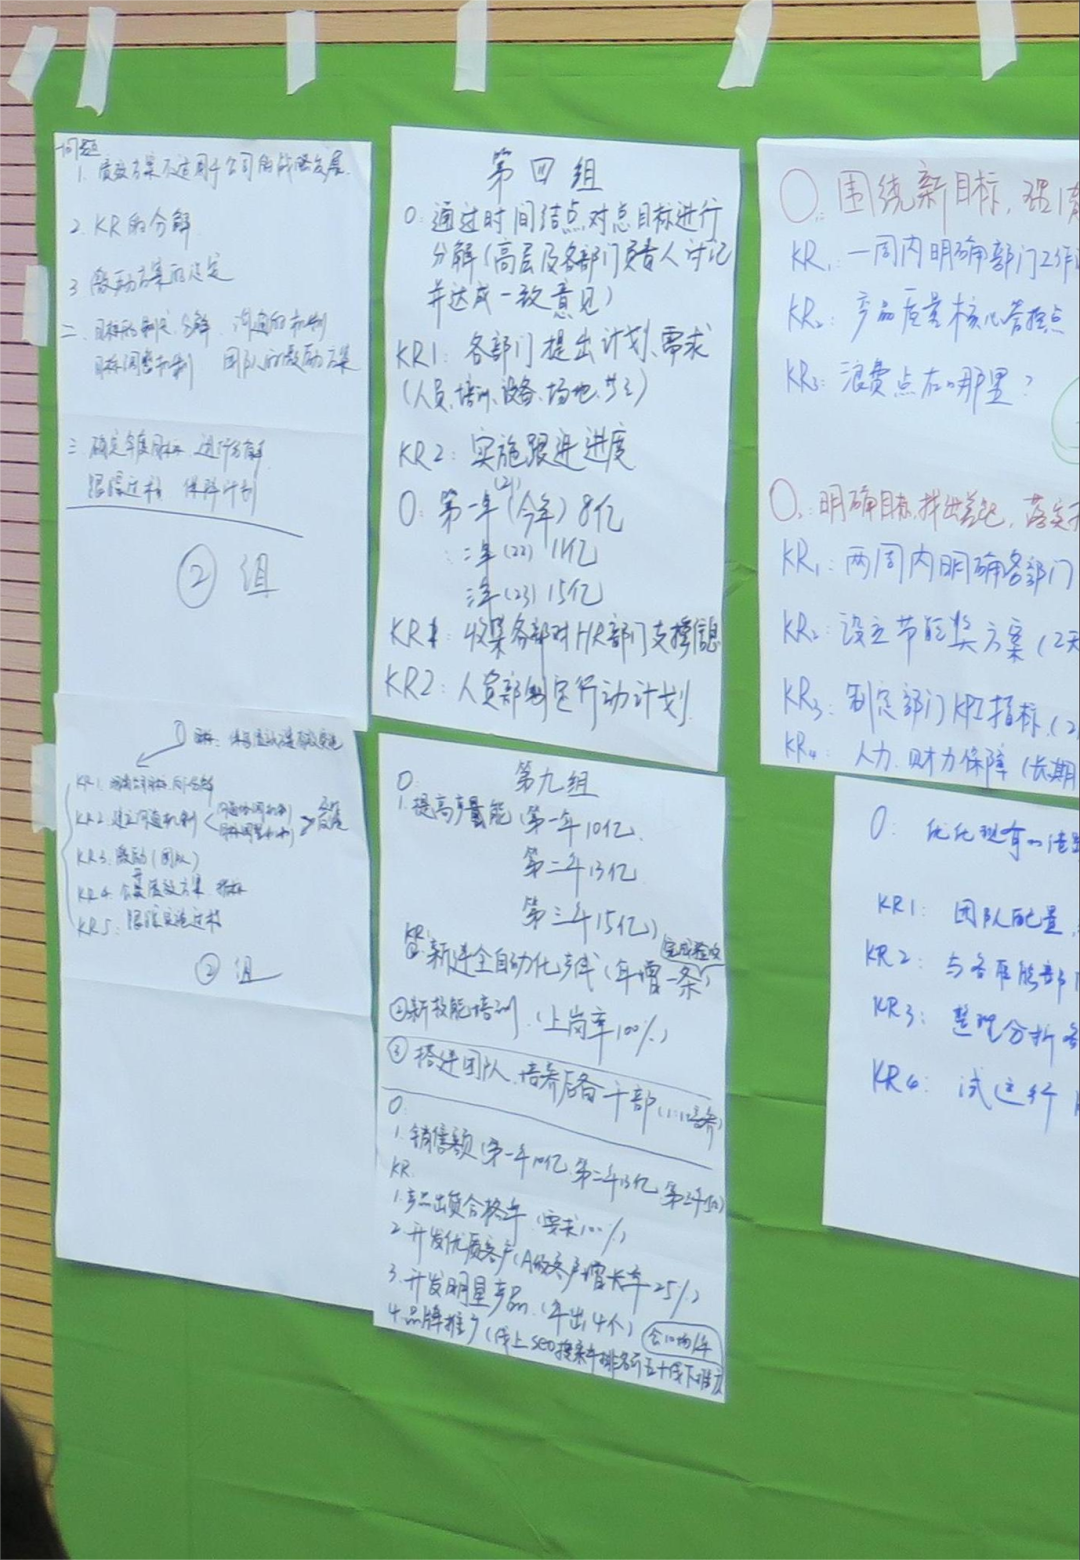 问题
1. 绩效方案不适用于公司的战略发展.
2. KR的分解
3 激励方案的设定
二、目标的制定、分解、沟通的机制
目标调整机制 团队的激励方案
三、确定年度目标、进行分解
跟踪过程 保障计划
② 组
O 目标:
KR1. 明确公司目标,
KR2. 建立沟通机制 沟通协调机制
目标调整机制
KR3. 激励(团队)
KR4. 绩效方案 指标
KR5: 跟踪实施过程
② 组
第四组
O: 通过时间结点,对总目标进行
分解(高层及各部门负责人讨论
并达成一致意见)
KR1: 各部门提出计划、需求
(人员、培训、设备、场地、
KR2: 实施跟进进度
O: 第一年(今年)(21) 8亿
二年(22) 11亿
三年(23) 15亿
KR1: 收集各部对HR部门支撑信息
KR2: 人资部制定行动计划
第九组
O:
1.提高产量能(第一年10亿.
第二年13亿
第三年15亿)
KR: 完成验收
①新建全自动化产线(年增一条)
②新技能培训.(上岗率100%)
③搭建团队、培养后备干部(1:1培养)
O:
1.销售额(第一年10亿、第二年13亿、第三年15亿)
KR.
1.产品出货合格率(要求100%)
2.开发优质客户(A级客户增长率25%)
3.开发明星产品.(年出4个)
4.品牌推广(线上SEO搜索率排名前五十 线下推广
O1: 围绕新目标,
KR1: 一周内明确部门工作
KR2: 产品质量核心管控点
KR3: 浪费点在哪里?
O2: 明确目标,找出差距,落实
KR1: 两周内明确各部门
KR2: 设立节能奖方案(2天
KR3: 制定部门KPI指标.(2
KR4: 人力、财力保障(长期
O: 优化现有
KR1: 团队配置,
KR2: 与各职能部
KR3: 整理分析各
KR4: 试运行